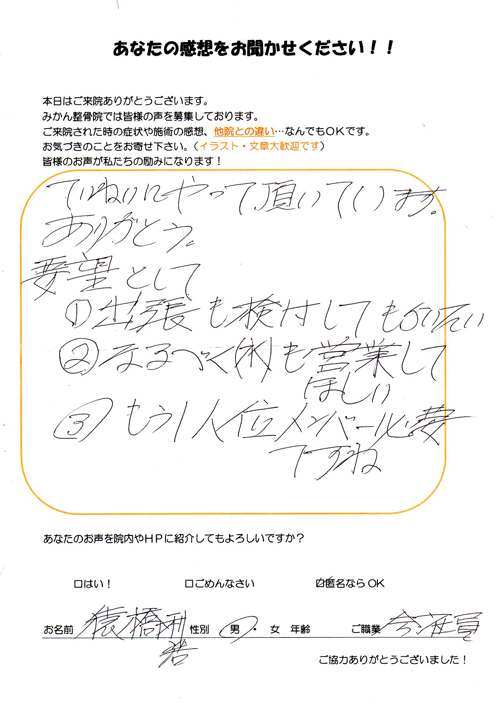 あなたの感想をお聞かせください！！
本日はご来院ありがとうございます。
みかん整骨院では皆様の声を募集しております。
ご来院された時の症状や施術の感想、他院との違い…なんでもOKです。
お気づきのことをお寄せ下さい。（イラスト・文章大歓迎です）
皆様のお声が私たちの励みになります！
ていねいにやって頂いています。
ありがとう。
要望として
①出張も検付してもらいたい
②なるべく(木)も営業して
ほしい
③もう1人位メンバー必要
ですね
あなたのお声を院内やHPに紹介してもよろしいですか？
□はい！ □ごめんなさい ☑匿名なら OK
お名前 猿橋利 性別 男・女 年齢 ご職業 会社員
浩
ご協力ありがとうございました！